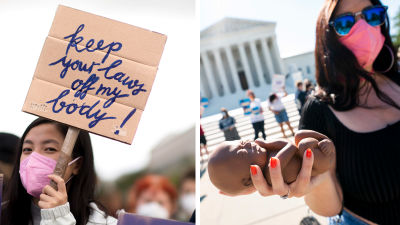 keep
your laws
off my
body!